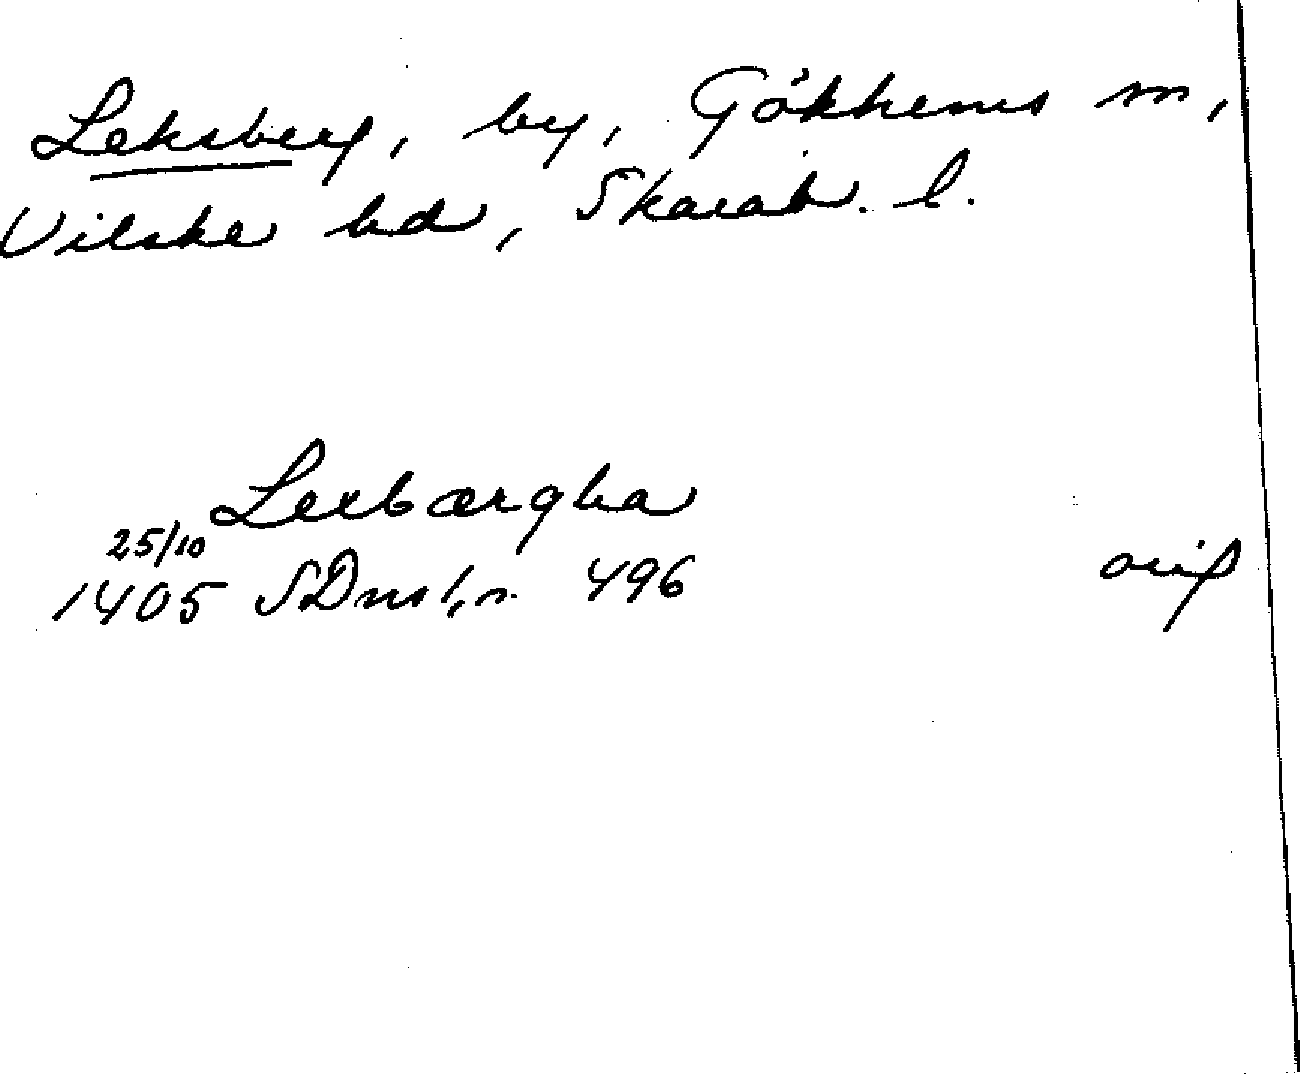 Leksberg, by, Gökhems sn,
Vilske hd, Skarab. l.
Lexbærgha
25/10
1405 SDns 1, s. 496 orig